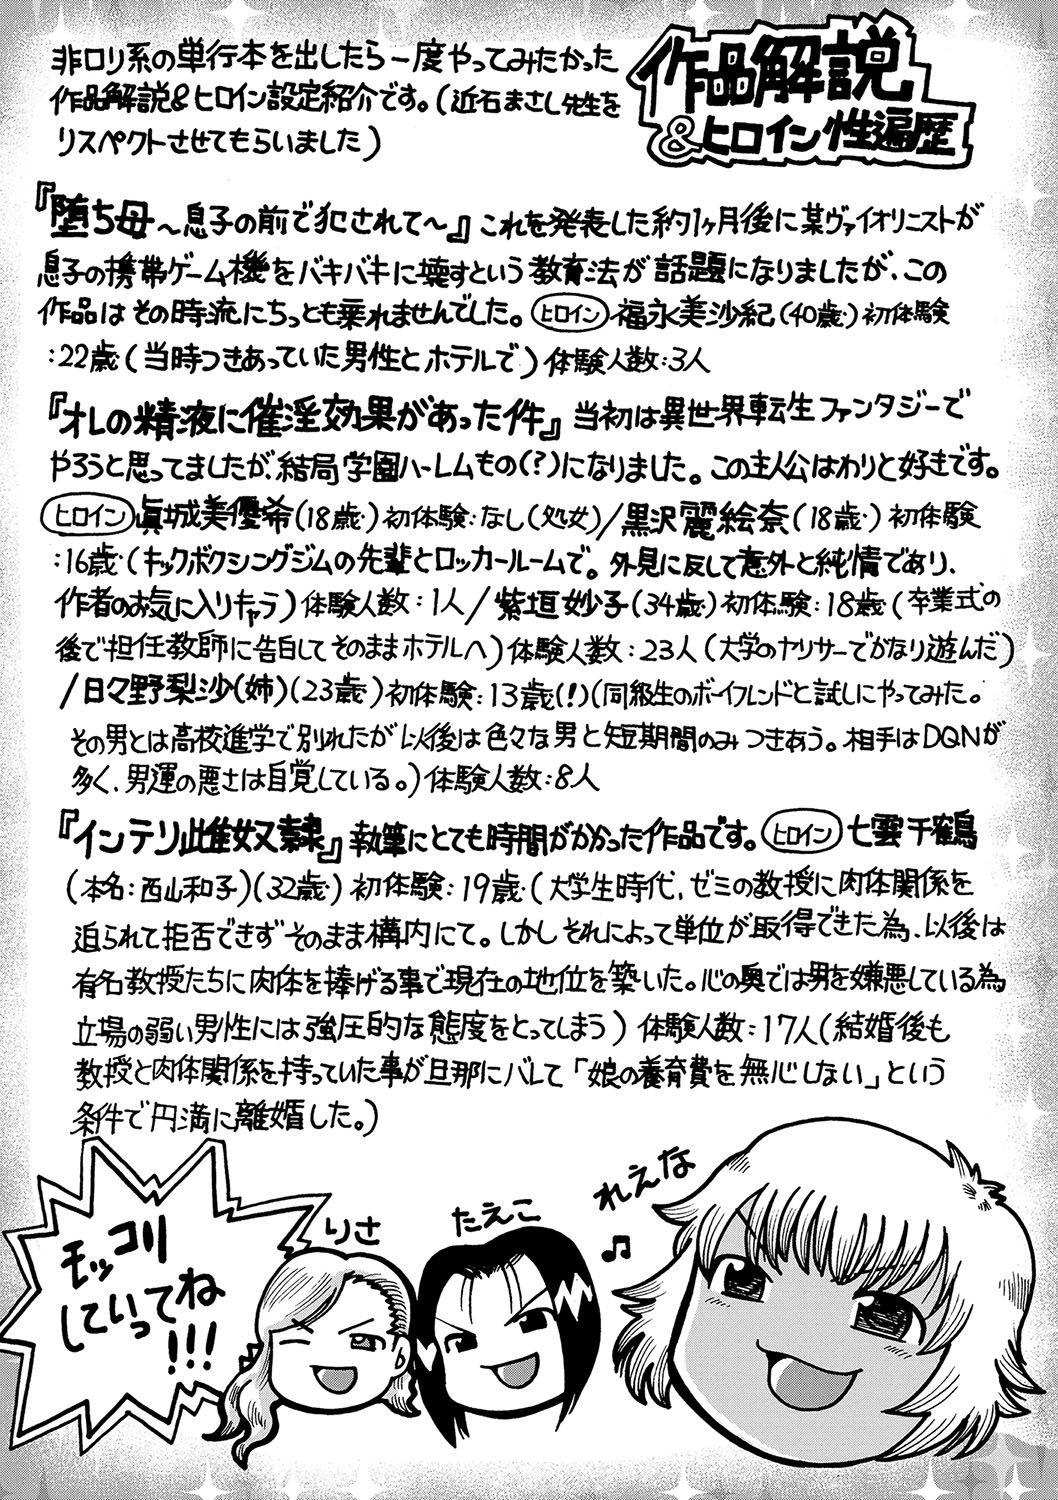 作品解説
&ヒロイン性遍歴
非ロリ系の単行本を出したら一度やってみたかった
作品解説&ヒロイン設定紹介です。(近石まさし先生を
リスペクトさせてもらいました)
『堕ち母～息子の前で犯されて～』これを発表した約1ヶ月後に某ヴァイオリニストが
息子の携帯ゲーム機をバキバキに壊すという教育法が話題になりましたが、この
作品はその時流にちっとも乗れませんでした。ヒロイン 福永美沙紀(40歳)初体験
:22歳(当時つきあっていた男性とホテルで)体験人数:3人
『オレの精液に催淫効果があった件』当初は異世界転生ファンタジーで
やろうと思ってましたが、結局学園ハーレムもの(?)になりました。この主人公はわりと好きです。
ヒロイン 眞城美優希(18歳)初体験:なし(処女)/黒沢麗絵奈(18歳)初体験
:16歳(キックボクシングジムの先輩とロッカールームで。外見に反して意外と純情であり、
作者のお気に入りキャラ)体験人数:1人/紫垣妙子(34歳)初体験:18歳(卒業式の
後で担任教師に告白してそのままホテルへ)体験人数:23人(大学のヤリサーでかなり遊んだ)
/日々野梨沙(姉)(23歳)初体験:13歳(!)(同級生のボーイフレンドと試しにやってみた。
その男とは高校進学で別れたが以後は色々な男と短期間のみつきあう。相手はDQNが
多く、男運の悪さは自覚している。)体験人数:8人
『インテリ雌奴隷』執筆にとても時間がかかった作品です。ヒロイン 七雲千鶴
(本名:西山和子)(32歳)初体験:19歳(大学生時代、ゼミの教授に肉体関係を
迫られて拒否できずそのまま構内にて。しかしそれによって単位が取得できた為、以後は
有名教授たちに肉体を捧げる事で現在の地位を築いた。心の奥では男を嫌悪している為、
立場の弱い男性には強圧的な態度をとってしまう)体験人数:17人(結婚後も
教授と肉体関係を持っていた事が旦那にバレて「娘の養育費を無心しない」という
条件で円満に離婚した。)
モッコリ
していってね
!!!
りさ
たえこ
れえな
♫